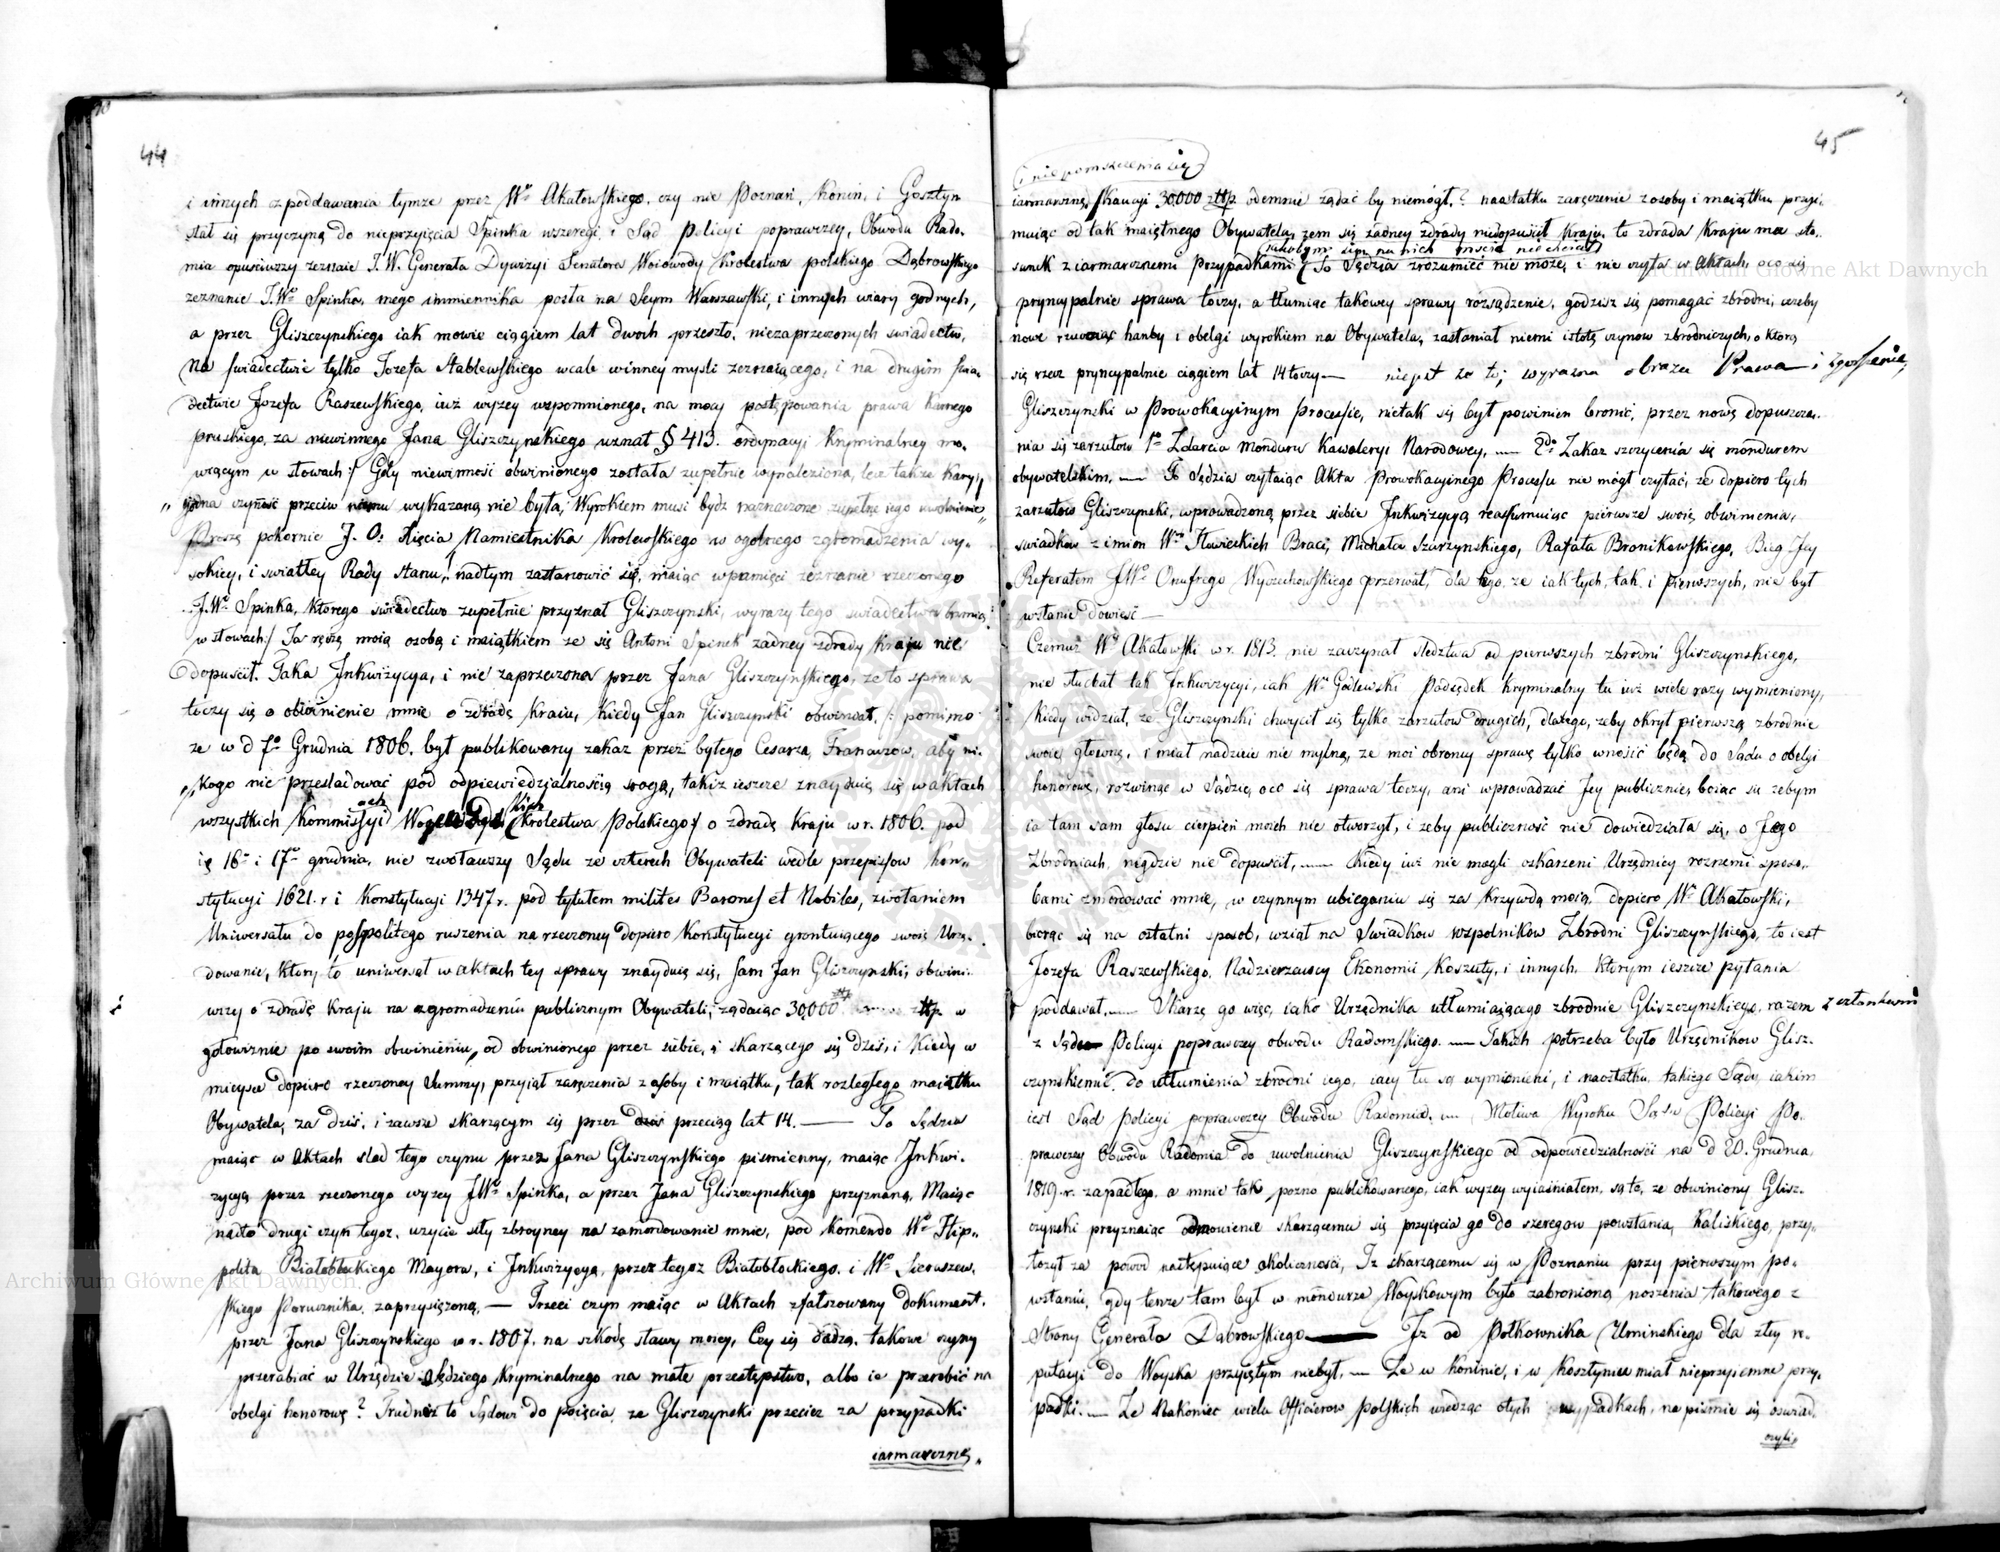 44
i innych z poddawania tymze przez Wo Akałowskiego, czy nie Poznań, Konin, i Gostyn
stał się przyczyną do nieprzyięcia Spinka w szeregi, i Sąd Policyi poprawczey, Obwodu Rado-
mia opuściwszy zeznaie J. W. Generała Dywizyi Senatora Woiewody Krolestwa polskiego Dąbrowskiego
zeznanie J. Wo Spinka, mego immiennika posła na Seym Warszawski, i innych wiary godnych,
a przez Gliszczynskiego iak mowie ciągiem lat dwoch przeszło, niezaprzeczonych swiadectw,
na swiadectwie tylko Jozefa Stablewskiego wcale w inney mysli zeznaiącego, i na drugim swia-
dectwie Jozefa Raszewskiego, iuż wyzey wspomnionego, na mocy postępowania prawa karnego
pruskiego, za niewinnego Jana Gliszczynskiego uznał § 413. ordynacyi Kryminalney mo-
wiącym w słowach:/ Gdy niewinność obwinionego została zupełnie wynaleziona, lecz także karygodna
czyność przeciw niemu wykazaną nie była, Wyrokiem musi bydz naznaczone zupełne iego uwolnienie
Proszę pokornie J. O. Xięcia Namiestnika Krolewskiego w ogolnego zgromadzenia wy-
sokiey, i swiatłey Rady stanu, nadtym zastanowić się, maiąc w pamięci zeznanie rzeczonego
J. Wo Spinka, ktorego swiadectwo zupełnie przyznał Gliszczynski, wyrazy tego swiadectwa brzmią
w słowach:/ Ja ręczę moią osobą i maiątkiem ze się Antoni Spinek zadney zdrady kraju nie
dopuscił. Taka Inkwizycya, i nie zaprzeczona przez Jana Gliszczynskiego, ze to sprawa
toczy się o obwinienie mnie o zdradę kraiu, kiedy Jan Gliszczynski obwiniał, /: pomimo
ze w d 7o Grudnia 1806. był publikowany zakaz przez byłego Cesarza Francuzow, aby ni-
kogo nie przesladować pod odpowiedzialnością srogą, takiz ieszcze znayduie się w aktach
wszystkich Kommissyi Krolestwa Polskiego:/ o zdradę kraju w r. 1806. pod
16o i 17o grudnia, nie zwoławszy Sądu ze czterech Obywateli wedle przepisow Kon-
stytucyi 1621. r i Konstytucyi 1347 r. pod tytułem milites Barones et Nobiles, zwołaniem
Uniwersału do pospolitego ruszenia na rzeczoney dopiero Konstytucyi gruntuiącego swoie Urzę-
dowanie, ktory to uniwersał w aktach tey sprawy znayduie się, sam Jan Gliszczynski, obwini-
wszy o zdradę kraju na zgromadzeniu publicznym Obywateli, ządaiąc 30,000 złtp w
gotowiznie po swoim obwinieniu, od obwinionego przez siebie, i skarzącego się dziś, i kiedy w
mieysce dopiero rzeczoney summy, przyiął zaręczenia z osoby i maiątku, tak rozległego maiątku
Obywatela, za dziś, i zawsze skarzącym się przez przeciąg lat 14. — To Sędzia
maiąc w aktach slad tego czynu przez Jana Gliszczynskiego pismienny, maiąc Inkwi-
zycyą przez rzeczonego wyzey J Wo Spinka, a przez Jana Gliszczynskiego przyznaną, Maiąc
nadto drugi czyn tegoz, uzycie siły zbroyney na zamordowanie mnie, pod komendo Wo Hip-
polita Białobłockiego Mayora, i Inkwizycyą, przez tegoz Białobłockiego, i Wo Sieraszew-
skiego Porucznika, zaprzysięzoną, — Trzeci czyn maiąc w Aktach zfałszowany dokument,
przez Jana Gliszczynskiego w r. 1807. na szkodę sławy moiey, Czy się dadzą, takowe czyny
przerabiać w Urzędzie Sędziego kryminalnego na małe przestępstwo, albo ie przerobić na
obelgi honorowe? Trudneż to Sądowi do poięcia, ze Gliszczynski przeciez za przypadki
iarmarczne,
45
i niepomszczenia się
iarmarczne, Kaucyi 30,000 złtp odemnie ządać by niemógł? naostatku zaręczenie z osoby i maiątku przyi-
muiąc od tak maiętnego Obywatela, zem się zadney zdrady niedopuscił kraju, to zdrada kraju ma sto-
sunek z iarmarcznemi przypadkami To Sędzia zrozumieć nie może, i nie czyta w Aktach, oco się
pryncypalnie sprawa toczy, a tłumiąc takowey sprawy rozsądzenie, godzisz się pomagać zbrodni, ażeby
nowe rzucaiąc hanby i obelgi wyrokiem na Obywatela, zasłaniał niemi istotę czynow zbrodniczych, o ktorą
się rzecz pryncypalnie ciągiem lat 14 toczy — niejest ze to; wyrazna obraza Prawa i Zgorszenie,
Gliszczynski w Prowokacyinym Processie, nietak się był powinien bronić, przez nowe dopuszcza-
nia się zarzutow 1o Zdarcia monduru Kawaleryi Narodowey, — 2do Zakaz szczycenia się mondurem
obywatelskim. — To Sędzia czytaiąc Akta Prowokacyinego Processu nie mógł czytać, ze dopiero tych
zarzutow Gliszczynski, wprowadzoną przez siebie Inkwizycyą reassumuiąc pierwsze swoie obwinienia,
swiadkow z imion Wo Słwieckich Braci, Michała Szurzynskiego, Rafała Bronikowskiego, Bieg Jey
Referatem J Wo Onufrego Wyczechowskiego przerwał, dla tego, ze iak tych, tak i pierwszych, nie był
wstanie dowiesć —
Czemuż Wo Akałowski w r. 1813. nie zaczynał sledztwa od pierwszych zbrodni Gliszczynskiego,
nie słuchał tak Inkwizycyi, iak Wo Godlewski Podsędek kryminalny tu iuż wiele razy wymieniony,
kiedy widział, ze Gliszczynski chwycił się tylko zarzutow drugich, dlatego, zeby okrył pierwszą zbrodnie
swoie głowną, i miał nadzieie nie mylną, ze moi obroncy sprawę tylko wnosić będą do Sądu o obelgi
honorowe, rozwinąc w Sądzie, oco się sprawa toczy, ani wprowadzać Jey publicznie, boiąc się zebym
ia tam sam głosu cierpień moich nie otworzył, i zeby publiczność nie dowiedziała się, o Jego
Zbrodniach, nigdzie nie dopuscił, — Kiedy iuż nie mogli oskarzeni Urzędnicy roznemi sposo-
bami zmordować mnie, w czynnym ubieganiu się za krzywdą moią, dopiero Wo Akałowski,
biorąc się na ostatni sposob, wziął na Swiadkow wspolnikow Zbrodni Gliszczynskiego, to iest
Jozefa Raszewskiego, Nadzierzawcy Ekonomii Koszuty, i innych, ktorym ieszcze pytania
poddawał. — Skarzę go więc, iako Urzędnika utłumiaiącego zbrodnie Gliszczynskiego, razem z członkami
z Sądu Policyi poprawczey obwodu Radomskiego. — Takich potrzeba było Urzędnikow Glisz-
czynskiemu do utłumienia zbrodni iego, iacy tu są wymienieni, i naostatku takiego Sądu, iakim
iest Sąd Policyi poprawczey Obwodu Radomia. — Motiwa Wyroku Sądu Policyi Po-
prawczey Obwodu Radomia do uwolnienia Gliszczynskiego od odpowiedzialności na d 20. Grudnia,
1819. r. zapadłego, a mnie tak pozno publikowanego, iak wyzey wyiaśniałem, są to, ze obwiniony Glisz-
czynski przyznaiąc odmowienie skarzącemu się przyięcia go do szeregow powstania, Kaliskiego, przy-
toczył za powod następuiące okoliczności, Iz skarzącemu się w Poznaniu przy pierwszym po-
wstaniu, gdy tenze tam był w mondurze Woyskowym było zabronioną noszenia takowego z
Strony Generała Dąbrowskiego — Iz od Połkownika Uminskiego dla złey re-
putacyi do Woyska przyiętym niebył. — Ze w Koninie, i w Kosztynie miał nieprzyiemne przy-
padki. — Ze Nakoniec wielu Officierow polskich wiedząc otych wypadkach, na pismie się oswiad-
czyli,